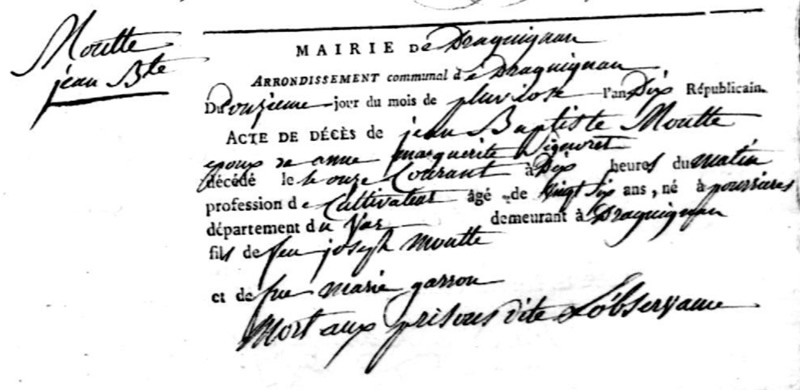 Moutte
jean Bte
MAIRIE de Draguignan
ARRONDISSEMENT communal de Draguignan
Du Douzieme jour du mois de pluviose l'an Dix Républicain
ACTE DE DÉCÈS de jean Baptiste Moutte
epoux de anne marguerite
décédé le onze Courant à Dix heures du matin
profession de Cultivateur âgé de vingt six ans, né à pourrieres
département du Var demeurant à Draguignan
fils de feu joseph moutte
et de fue marie garron
Mort aux prisons dite L'observance